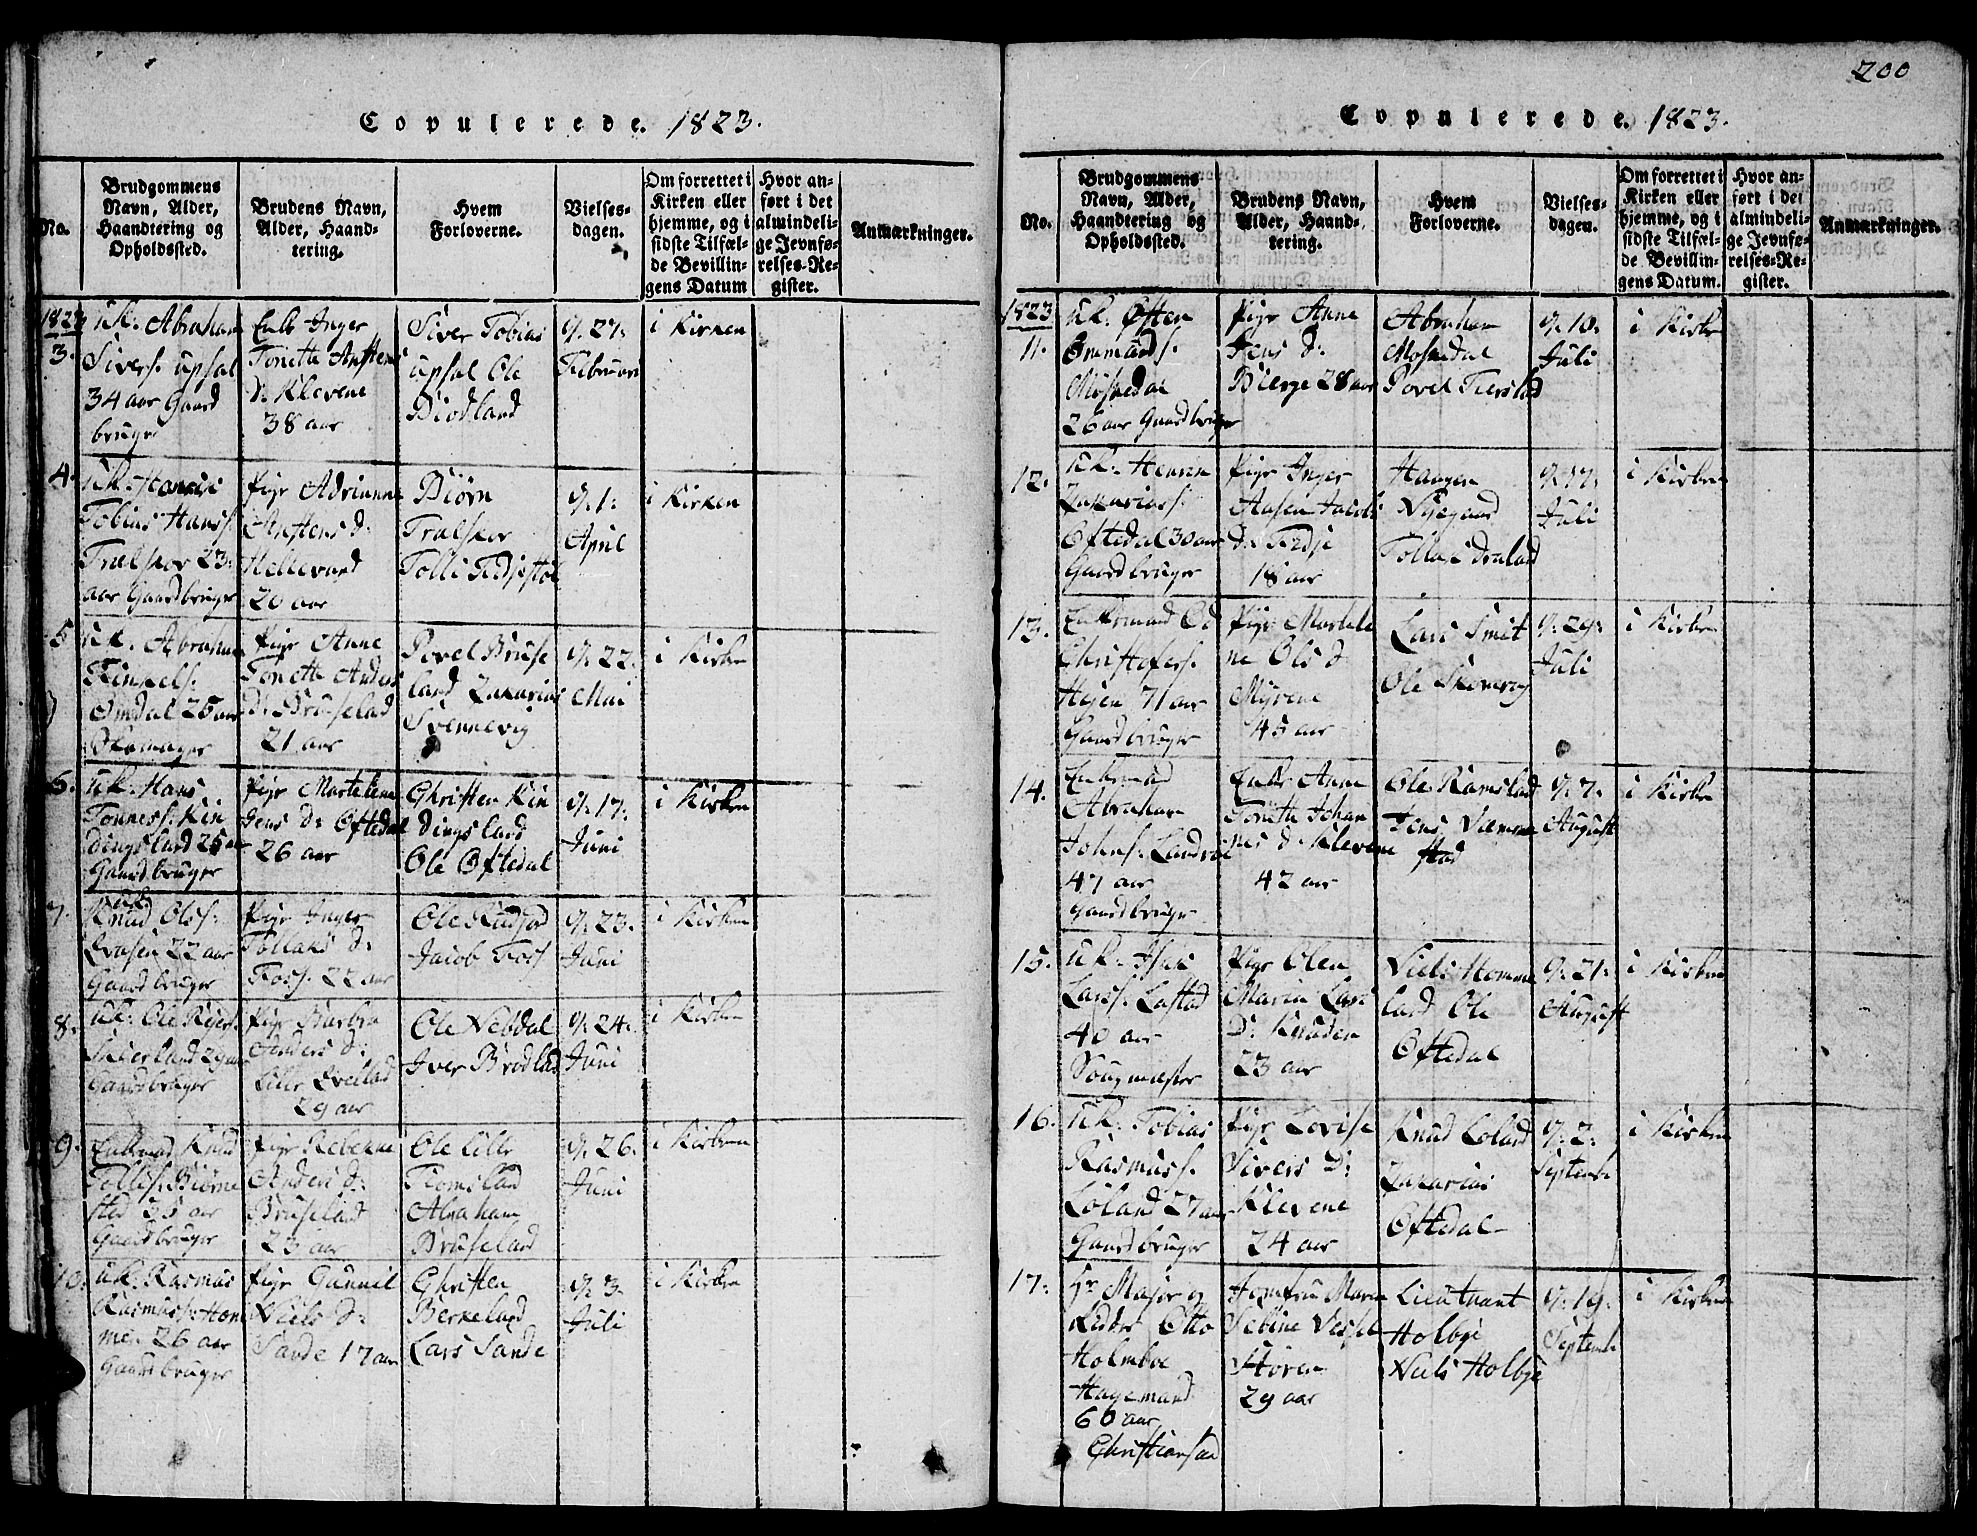 200
Copulerede. 1823.
No.
Brudgommens
Navn, Alder,
Haandtering og
Opholdssted.
Brudens Navn,
Alder, Haand-
tering.
Hvem
Forloverne.
Vielses-
dagen.
Om forrettet i
Kirken eller
hjemme, og i
sidste Tilfæl-
de Bevillin-
gens Datum
Hvor an-
ført i det
almindeli-
ge Jevnfø-
relses-Re-
gister.
Anmærkninger.
1823
3.
uk: Abraham
Sivers: upsal
34 aar Gaard
bruger
Enke Inger
Tonette
D: Klevene
38 aar
Siver Tobias
upsal Ole
Biodland
d: 27:
Februari
i Kirken
4.
uk:
Tobias Hans s:
Trælskor 23:
aar Gaardbruger
Pige Adrianne
d:
Hellevard
20 aar
Biørn
Tralskor
Tolli
d: 1:
April
i Kirken
5
uk. Abraham
Omdal 25 aar
Skomager
Pige Anne
Tonette Anders
D: Bruselad
21 aar
Povel Bruse
land Zakarias
Svennevig
d: 22:
Mai
i Kirken
6.
uk: Hans
Tønnes s: Kin
dingsland 25 aar
Gaardbruger
Pige Martelene
Jens D: Oftedal
26 aar
Christen Kin
dingsland
Ole Oftedal
d: 17:
Juni
i Kirken
7.
uk
Knud Ols s:
22 aar
Gaardbruger
Pige Inger
Tollaks d:
Foss. 22 aar
Ole
Jacob Foss
d: 23.
Juni
i Kirken
8.
uk: Ole
29 aar
Gaardbruger
Pige Barbra
Anders d:
Lille
29 aar
Ole Nebdal
Iver Brodlad
d: 24:
Juni
i Kirken
9.
Enkmad Knud
Tollis s: Biørne
sted 35 aar
Gaardbruger
Pige Rebekke
Anders d:
Bruseland
23 aar
Ole Lille
Abraham
Bruseland
d: 26.
Juni
i Kirken
10.
uk: Rasmus
Rasmus s: Hom
me 26 aar
Gaardbruger
Pige Gunnil
Niels d:
Sande 17 aar
Christen
Berkeland
Lars Sande
d: 3.
Juli
i Kirken
Copulerede. 1823.
No.
Brudgommens
Navn, Alder,
Haandtering og
Opholdssted.
Brudens Navn,
Alder, Haand-
tering.
Hvem
Forloverne.
Vielses-
dagen.
Om forrettet i
Kirken eller
hjemme, og i
sidste Tilfæl-
de Bevillin-
gens Datum.
Hvor an-
ført i det
almindeli-
ge Jevnfø-
relses-Re-
gister.
Anmærkninger.
1823
11.
uk. Østen
Ommunds:
Moskedal
26 aar Gaardbruger
Pige Anne
Jens d:
Bierge 28 aar
Abraham
Moskedal
Povel
d: 10.
Juli
i Kirken
12.
uk.
Zakarias s:
Oftedal 30 aar
Gaardbruger
Pige Inger
Aasen Jacobs
d:
18 aar
Haagen
Tollis
d: 17:
Juli
i Kirken
13.
Enkemand
Christofers:
71 aar
Gaardbruger
Pige Martele
ne Ols d
Myrene
45 aar
Lars Smit
Ole
d: 29:
Juli
i Kirken
14.
Enkmad
Abraham
Johns:
47 aar
Gaardbruger
Enke Anne
Tonette Johan
nes d: Klevene
42 aar
Ole Ramslad
Jens
stad
d: 7.
August
i Kirken
15.
uk.
Lars s:
40 aar
Pige Olen
Maria Lars
D: Knuden
23 aar
Niels Homme
land Ole
Oftedal
d: 21:
August
i Kirken
16.
uk. Tobias
Rasmus s.
Loland 27 aar
Gaardbruger
Pige Lovise
Sivers D:
Klevene
24 aar
Knud Loland
Zakarias
Oftedal
d: 2:
Septemb
i Kirken
17:
Hr Major og
Ridder Otto
Holmboe
Hagemand
60 aar
Christiansan
Jomfru Maren
Sebine Vessel
Støren
29 aar
Lieutnant
Holbye
Niels Holbye
d: 19.
Septemb
i Kirken